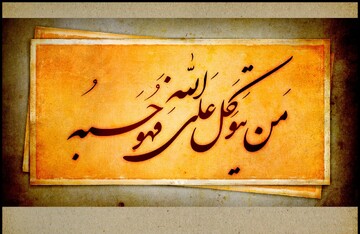 مَن يَتَوَكَّل عَلَى اللهِ فَهُوَ حَسبُهُ